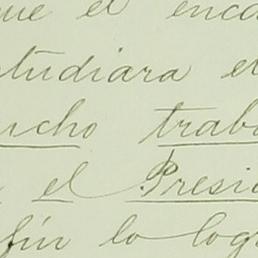 que el enca
studiara el
ucho traba
el Presi
fin lo logr